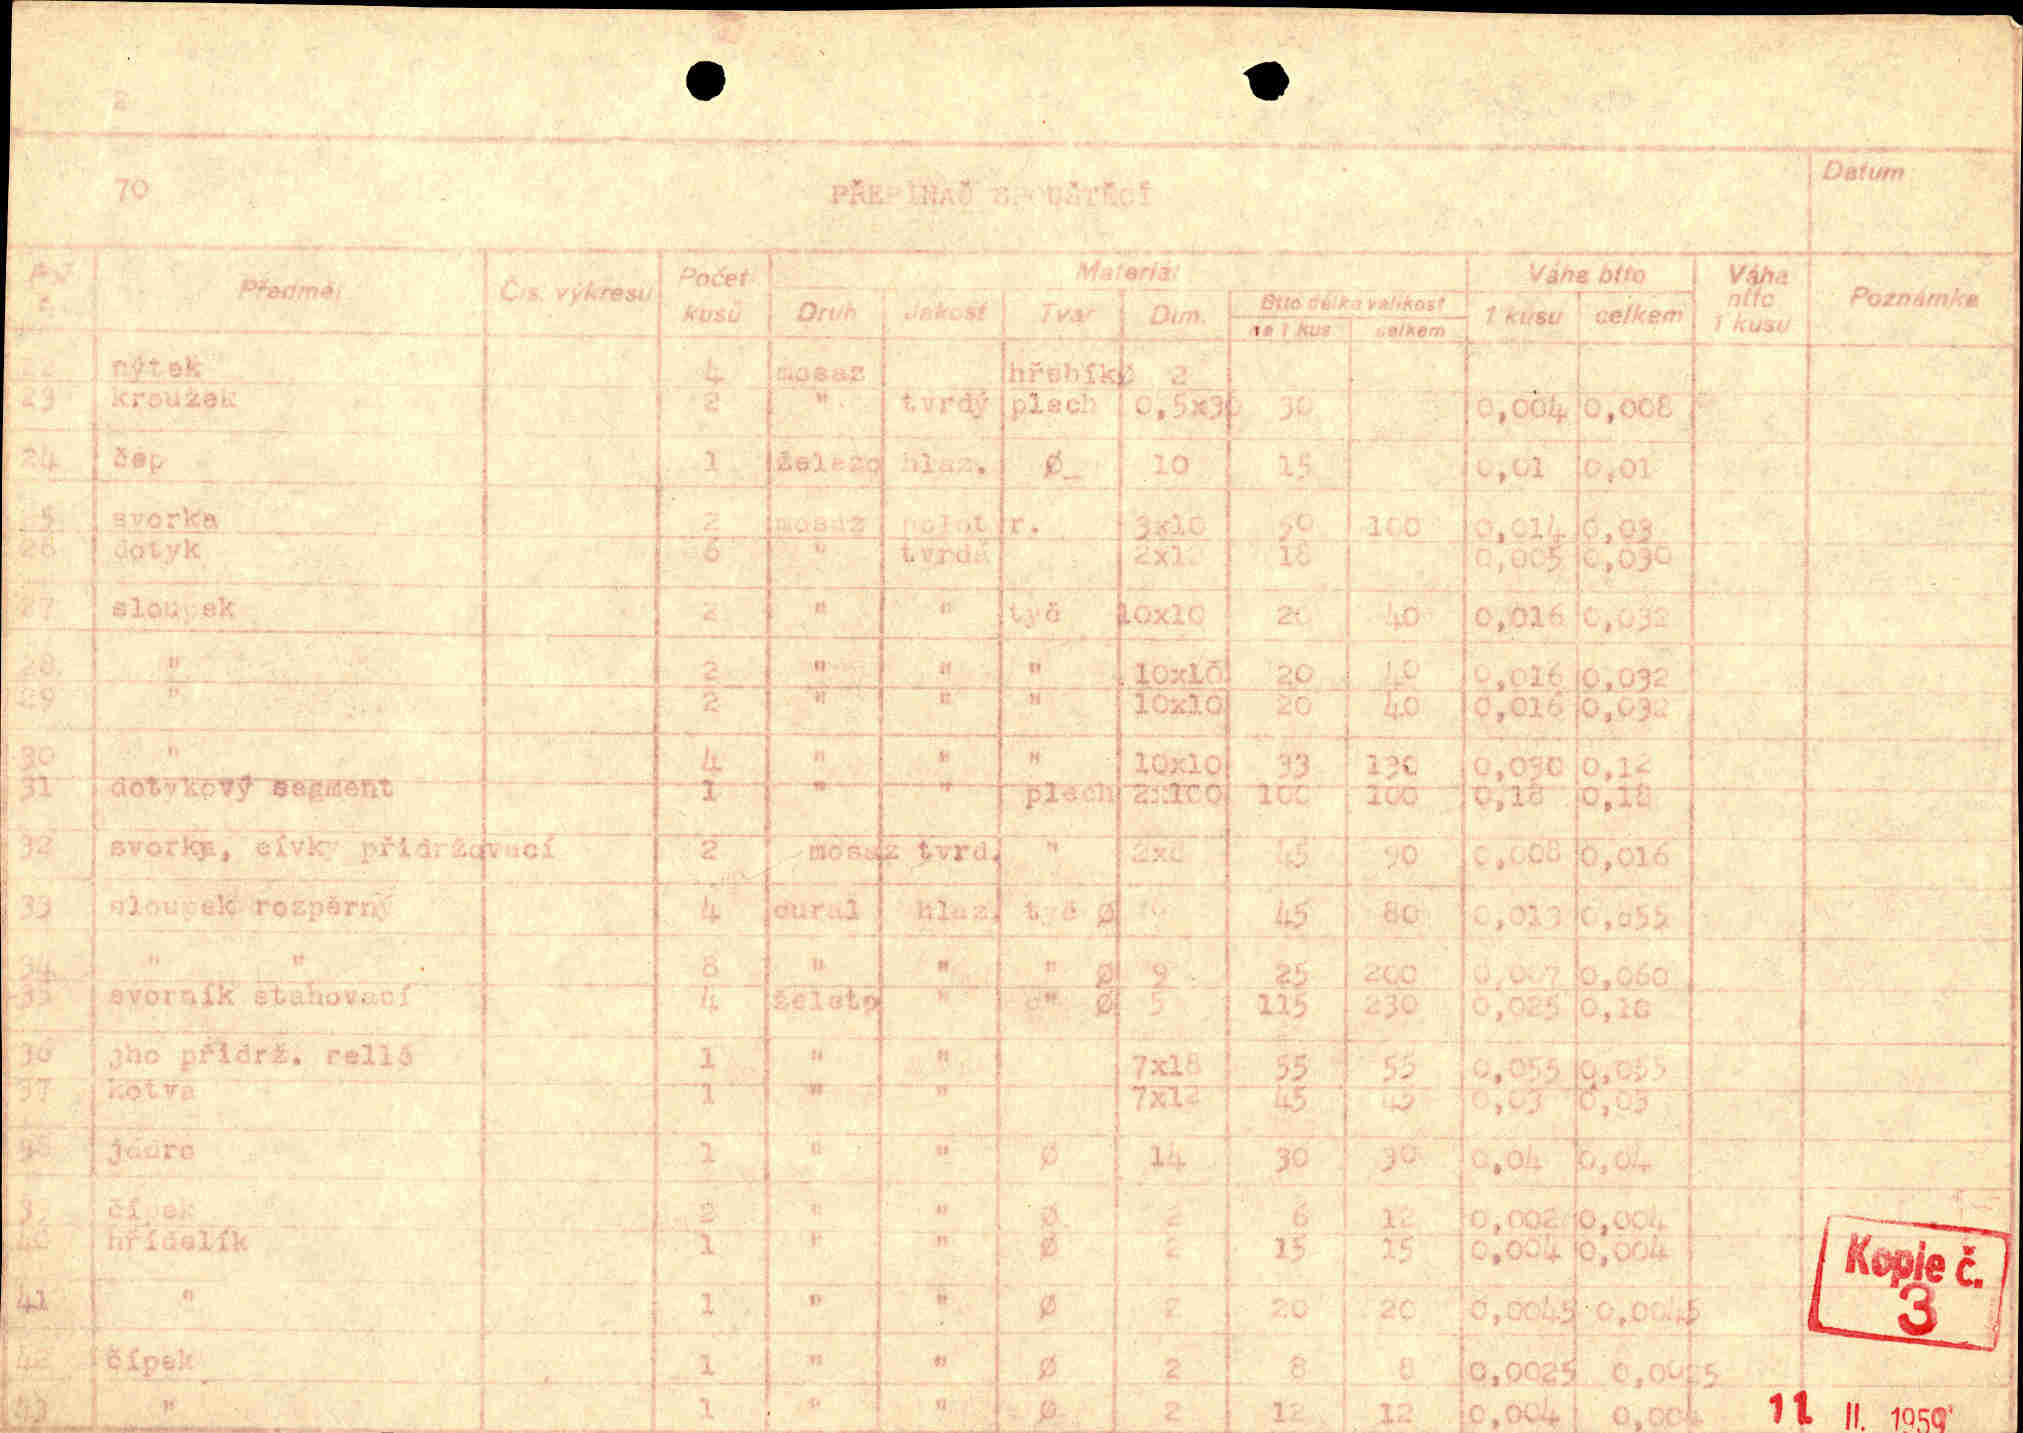 2
70 PŘEPÍNAČ SPOUŠTĚCÍ Datum
Předmět Čís. výkresu Počet kusů Materiál Váha btto Váha ntto 1 kusu Poznámka
Druh Jakost Tvar Dim. Btto délka velikost 1 kusu celkem
na 1 kus celkem
22 nýtek 4 mosaz hřebíky 2
23 kroužek 2 " tvrdý plech 0,5x30 30 0,004 0,008
24 čep 1 železo hlaz. Ø 10 15 0,01 0,01
5 svorka 2 mosaz polotvr. 3x10 50 100 0,014 0,03
26 dotyk 6 " tvrdá 2x12 18 0,005 0,030
27 sloupek 2 " " tyč 10x10 20 40 0,016 0,032
28 " 2 " " " 10x10 20 40 0,016 0,032
29 " 2 " " " 10x10 20 40 0,016 0,032
30 " 4 " " " 10x10 33 130 0,030 0,12
31 dotykový segment 1 " " plech 2x100 100 100 0,18 0,18
32 svorka, cívky přidržovací 2 mosaz tvrd. " 45 90 0,008 0,016
33 sloupek rozpěrný 4 dural hlaz. tyč Ø 45 80 0,013 0,055
34 " " 8 " " " Ø 9 25 200 0,007 0,060
35 svorník stahovací 4 železo " " Ø 5 115 230 0,025 0,18
36 jho přidrž. rellé 1 " " 7x18 55 55 0,055 0,055
37 kotva 1 " " 7x12 45 45 0,03 0,03
38 jádro 1 " " Ø 14 30 30 0,04 0,04
39 čípek 2 " " Ø 2 6 12 0,002 0,004
40 hřídelík 1 " " Ø 2 15 15 0,004 0,004
41 " 1 " " Ø 2 20 20 0,0045 0,0045
42 čípek 1 " " Ø 2 8 8 0,0025 0,0025
43 " 1 " " Ø 2 12 12 0,004 0,004
Kopie č.
3
11 II. 1959